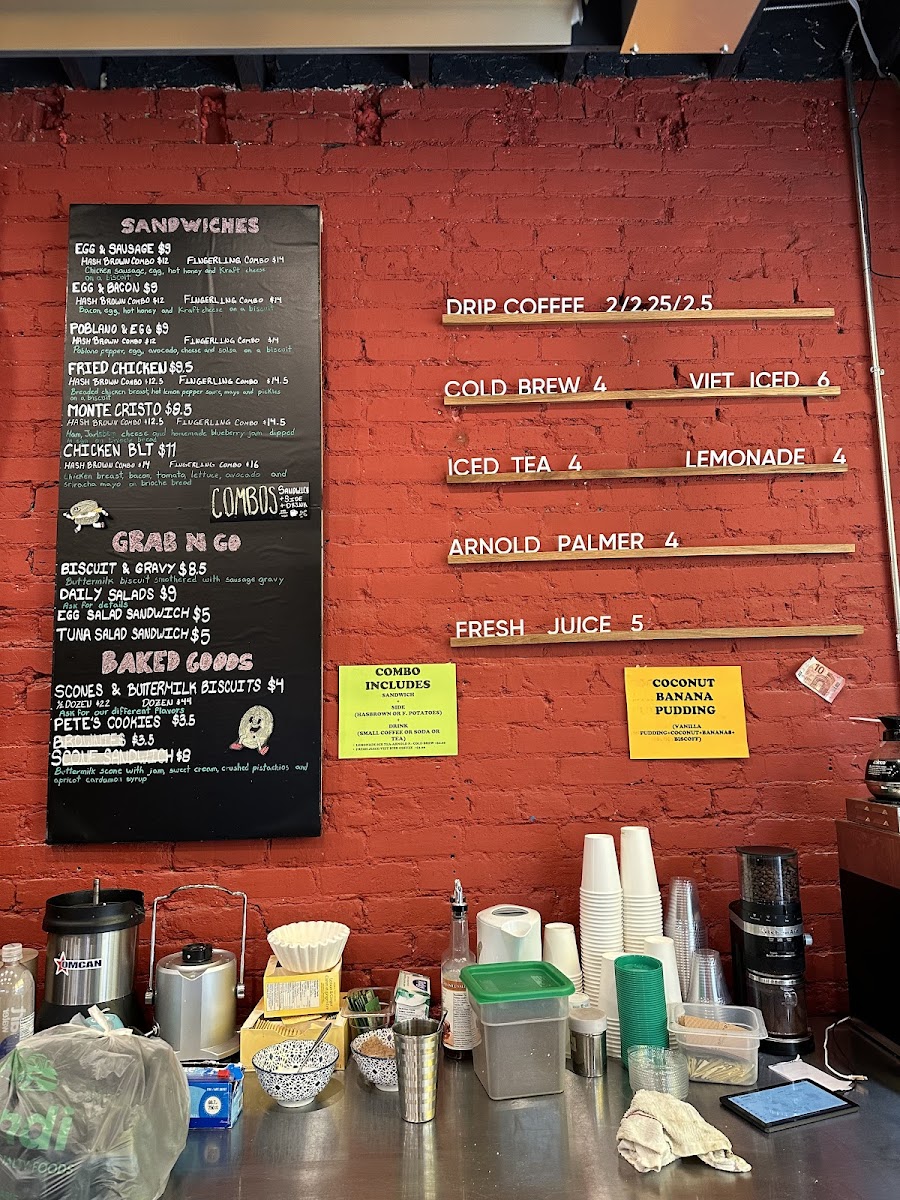 SANDWICHES
EGG & SAUSAGE $9
HASH BROWN COMBO $12 FINGERLING COMBO $14
Chicken sausage, egg, hot honey and Kraft cheese
on a biscuit
EGG & BACON $9
HASH BROWN COMBO $12 FINGERLING COMBO $14
Bacon, egg, hot honey and Kraft cheese on a biscuit
POBLANO & EGG $9
HASH BROWN COMBO $12 FINGERLING COMBO $14
Poblano pepper, egg, avocado, cheese and salsa on a biscuit
FRIED CHICKEN $9.5
HASH BROWN COMBO $12.5 FINGERLING COMBO $14.5
Breaded chicken breast, hot lemon pepper sauce, mayo and pickles
on a biscuit
MONTE CRISTO $9.5
HASH BROWN COMBO $12.5 FINGERLING COMBO $14.5
Ham, cheese and homemade blueberry jam dipped
CHICKEN BLT $11
HASH BROWN COMBO $14 FINGERLING COMBO $16
Chicken breast, bacon, tomato, lettuce, avocado and
sriracha mayo on brioche bread
COMBOS SANDWICH
+ SIDE
+ DRINK
GRAB N GO
BISCUIT & GRAVY $8.5
Buttermilk biscuit smothered with sausage gravy
DAILY SALADS $9
Ask for details
EGG SALAD SANDWICH $5
TUNA SALAD SANDWICH $5
BAKED GOODS
SCONES & BUTTERMILK BISCUITS $4
½ DOZEN $22 DOZEN $44
Ask for our different flavors
PETE'S COOKIES $3.5
BROWNIES $3.5
SCONE SANDWICH $8
Buttermilk scone with jam, sweet cream, crushed pistachios and
apricot cardamom syrup
DRIP COFFEE 2/2.25/2.5
COLD BREW 4 VIET ICED 6
ICED TEA 4 LEMONADE 4
ARNOLD PALMER 4
FRESH JUICE 5
COMBO
INCLUDES
SANDWICH
+
SIDE
(HASBROWN OR F. POTATOES)
+
DRINK
(SMALL COFFEE OR SODA OR
TEA)
COCONUT
BANANA
PUDDING
(VANILLA
PUDDING+COCONUT+BANANAS+
BISCOFF)
10
TOMCAN